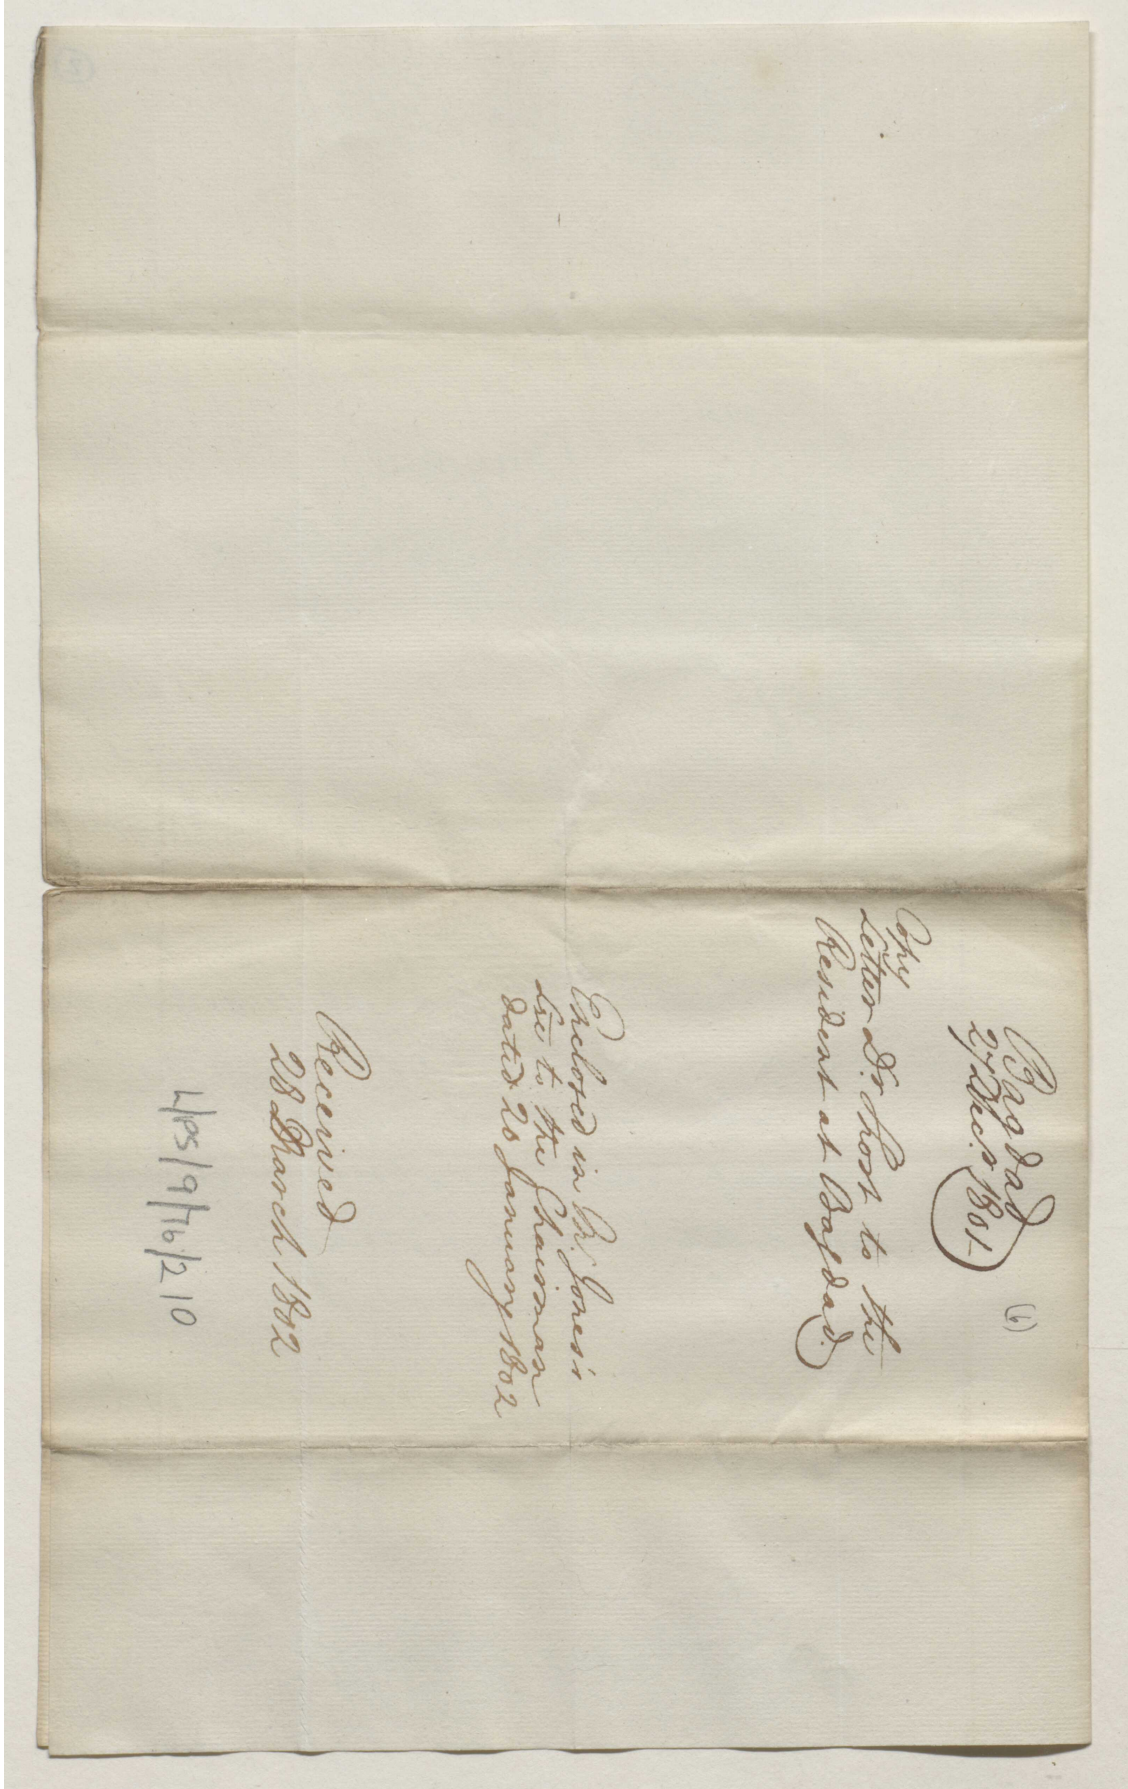 Bagdad
27 Dec.r 1801
(6)
Copy
Letter Dr. Short to the
Resident at Bagdad.
Enclosed in Mr. Jones's
Lre to the Chairman
dated 20 January 1802
Received
28 March 1802
L/PS/9/76/210